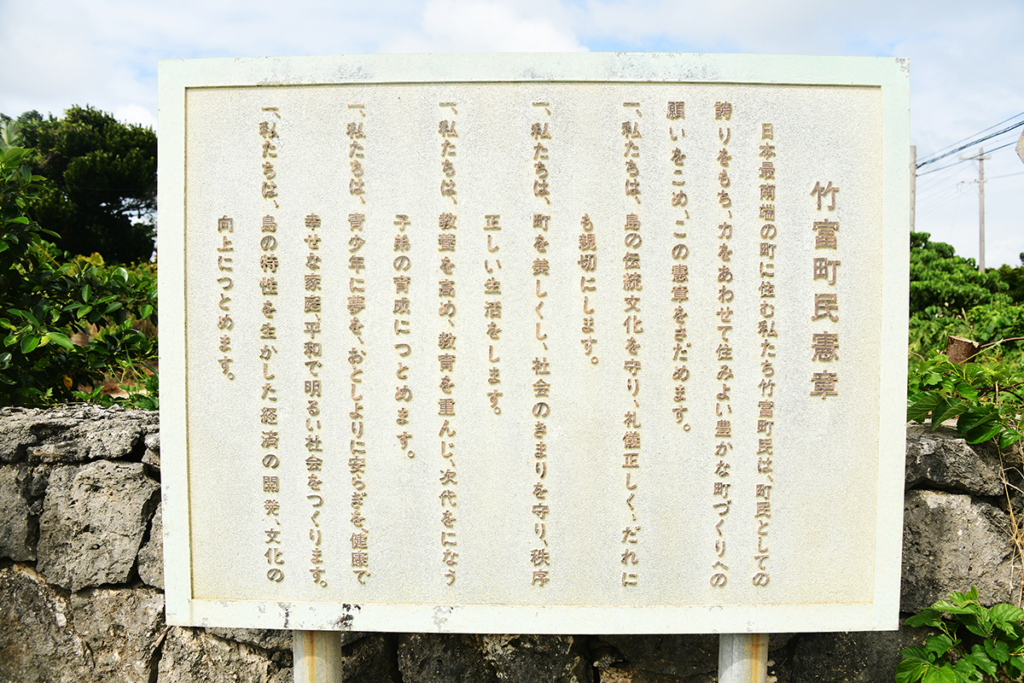 竹富町民憲章
日本最南端の町に住む私たち竹富町民は、町民としての
誇りをもち、力をあわせて住みよい豊かな町づくりへの
願いをこめ、この憲章をさだめます。
一、私たちは、島の伝統文化を守り、礼儀正しく、だれに
も親切にします。
一、私たちは、町を美しくし、社会のきまりを守り、秩序
正しい生活をします。
一、私たちは、教養を高め、教育を重んじ、次代をになう
子弟の育成につとめます。
一、私たちは、青少年に夢を、おとしよりに安らぎを、健康で
幸せな家庭、平和で明るい社会をつくります。
一、私たちは、島の特性を生かした経済の開発、文化の
向上につとめます。